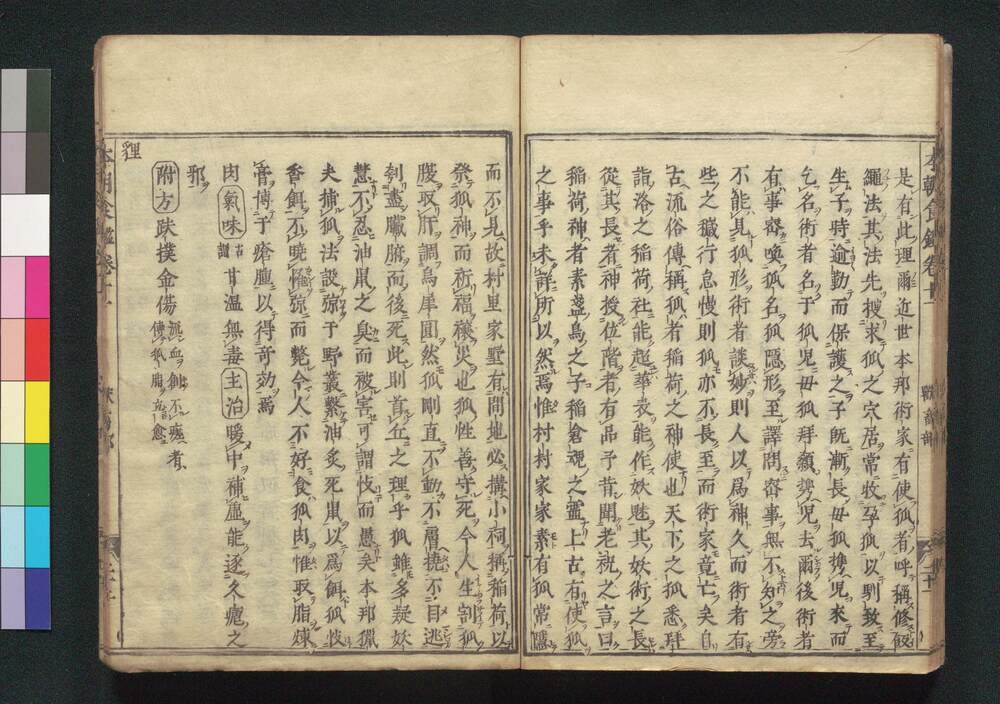 是有此理爾近世本邦術家有使狐者呼稱修飯
繩法其法先搜求狐之穴居常收孕狐以馴致至
生子時逾勤而保護之子既漸長母狐携兒來而
乞名術者名于狐兒母狐拜顙携兒去爾後術者
有事密喚狐名狐隱形至譯問密事無不知之旁
不能見狐形術者談妙則人以為神久而術者有
些之穢行怠慢則狐亦不長至而術家竟亡矣自
古流俗傳稱狐者稻荷之神使也天下之狐悉拜
詣洛之稻荷社能超華表能作妖魅其妖術之長
從其長者神授位階者有品予昔聞老祝之言曰
稻荷神者素盞烏之子稻倉魂之靈上古有使狐
之事乎未詳所以然焉惟村村家家素有狐常隱
本朝食鑑卷十一
獸畜部
而不見故村里家墅有間地必搆小祠稱稻荷以
祭狐神而祈福禳災也狐性善守死今人生割狐
腹取肝調烏犀圓然狐剛直不動不膚撓不目逃
刳盡臟腑而後死此則首丘之理乎狐雖多疑妖
慧不忍油鼠之臭而被害可謂忮而愚矣本邦獵
夫捕狐法設弶于野叢繫油炙死鼠以為餌狐忮
香餌不曉弶而斃今人不好食狐肉惟取脂煉
膏傅于瘡腫以得奇効焉
肉氣味甘温無毒主治暖中補虛能逐久瘧之
邪
附方跌撲金傷
流血創不癒者
傅狐脂立愈
狸
本朝食鑑卷十一